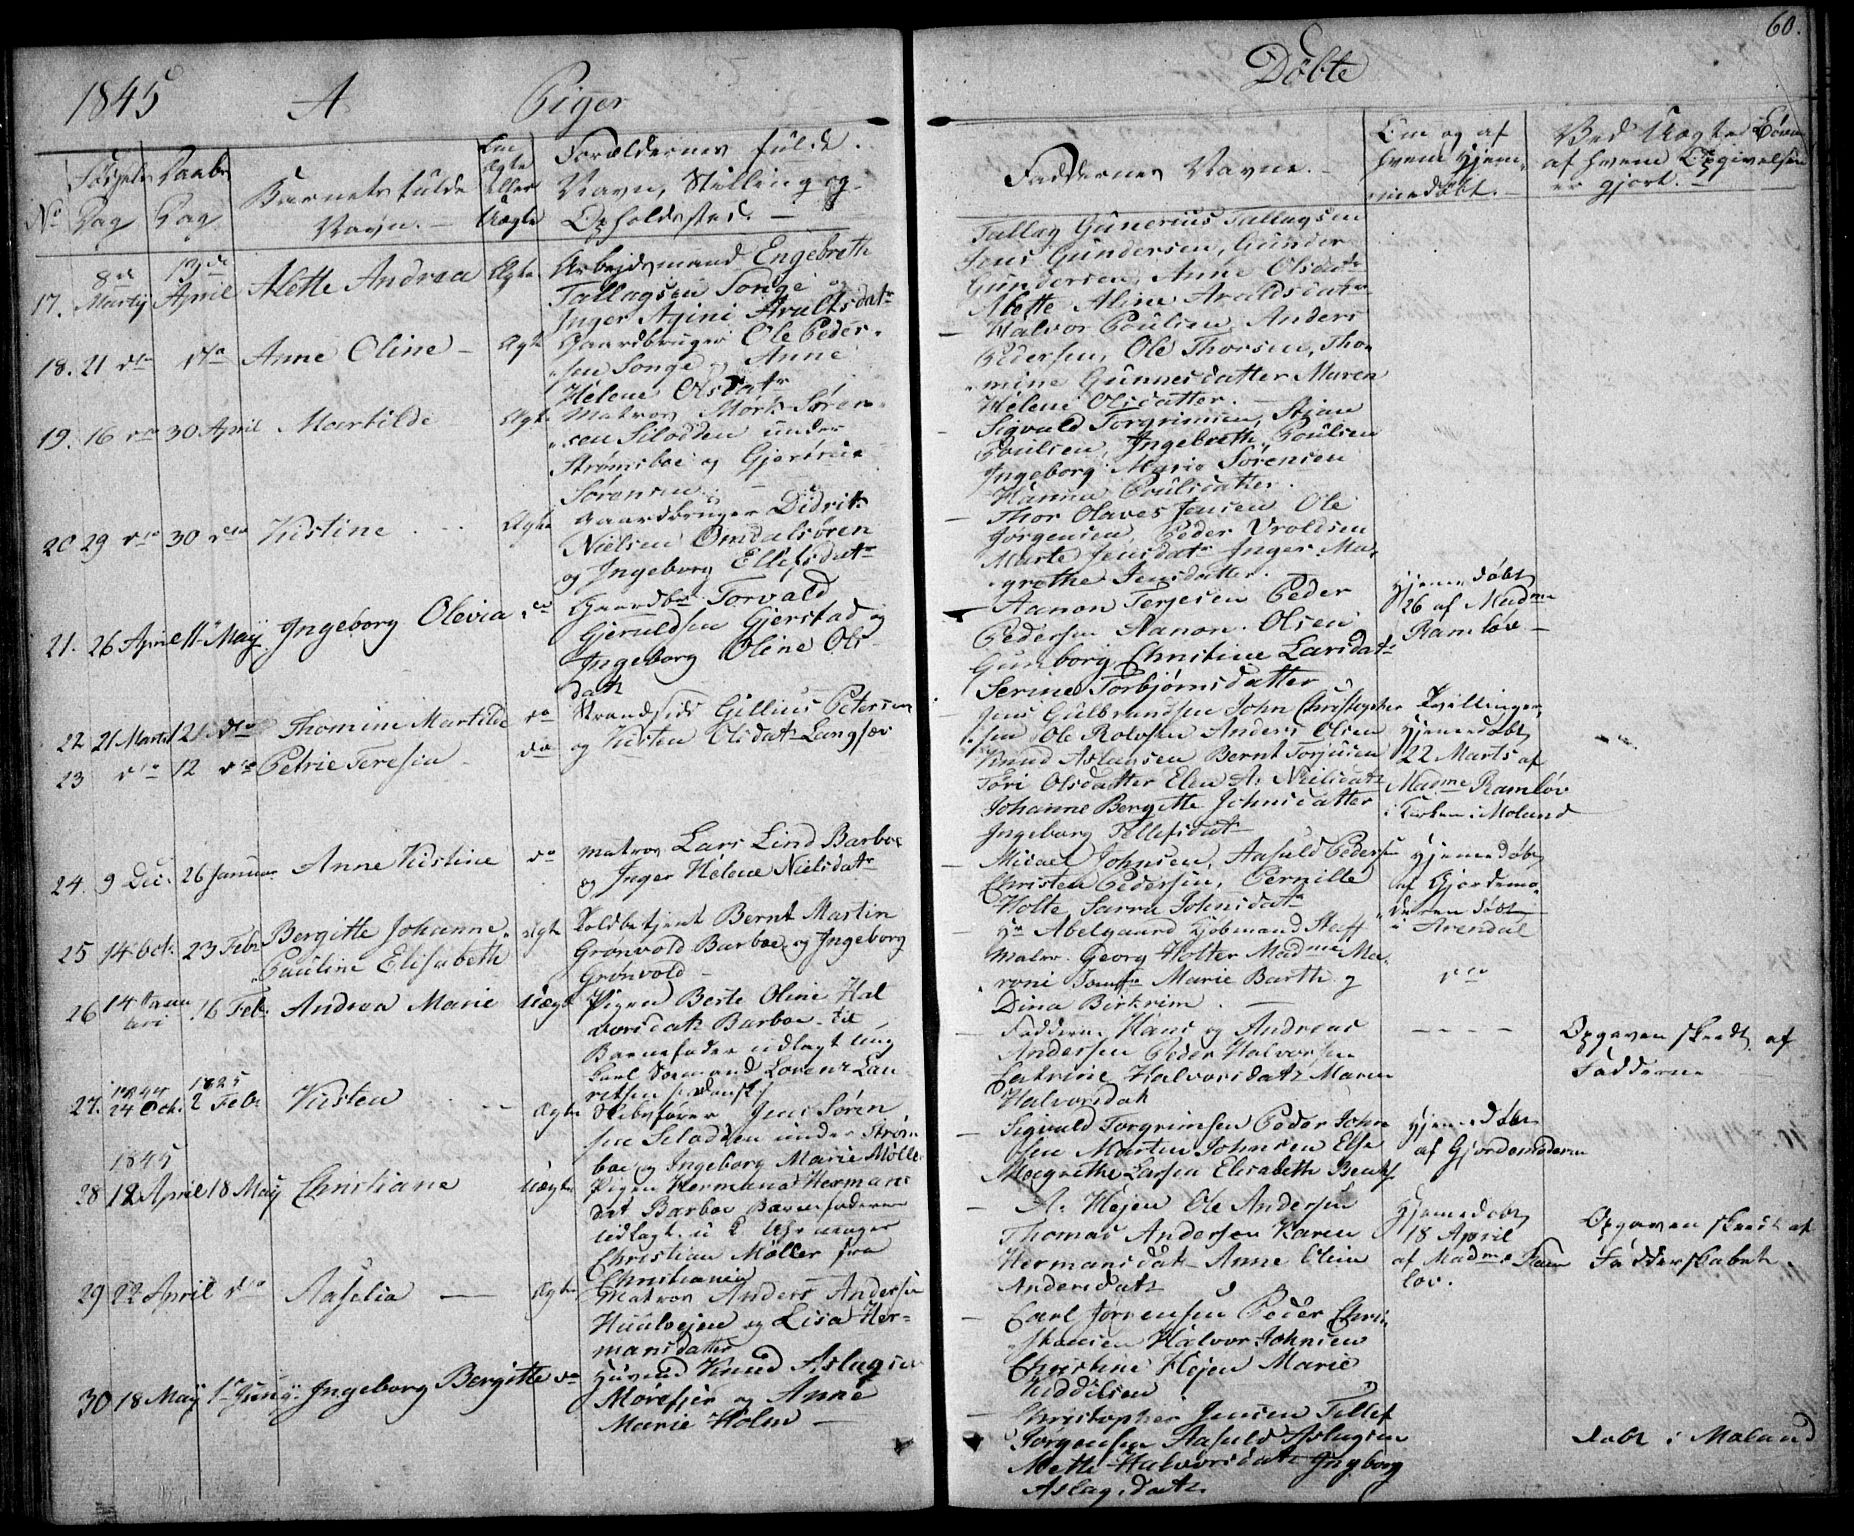 60.
1845 A Piger
Døbte
No
Fødsels Dag
Daabs Dag
Barnets fulde Navn.
Om Ægte eller Uægte
Forældrenes fulde Navn, Stilling og Opholdssted.
Faddernes Navne.
Om og af hvem hjemmedøbt.
Ved Uægte Børn af hvem Opgivelsen er gjort.
17. 8de Martij 13de April Alette Andrea Ægte
Arbeidsmand Engebreth
Tallagsen Songe og
Inger Arultsdatr
Tallag Gunerius Tallagsen
Jens Gundersen, Gunder
Gundersen, Anne Olsdatr
Alette Aline Araldsdatr
18. 21 dto dto Anne Oline Ægte
Gaardbruger Ole Peder-
sen Songe og Anne
Helene Olsdatr
Halvor Poulsen, Anders
Pedersen, Ole Thorsen, Tho-
mine Gunnesdatter Maren
Helene Olsdatter.
19. 16 dto 30 April Martilde Ægte
Matros Mørk Søren-
sen Slodden under
Strømsboe og
Sørensen
Sigvald Torgrimsen, Stian
Poulsen, Ingebreth Poulsen
Ingeborg Marie Sørensen
Hanna Poulsdatter.
20 29 dto 30 dto Kistine Ægte
Gaardbruger Didrik
Nielsen Omdalsøren
og Ingeborg Ellefsdatr
Thor Olaves Jensen Ole
Jørgensen, Peder Vroldsen
Marte Jensdatr Inger Ma-
grethe Jensdatter.
21. 26 April 11 Maij. Ingeborg Olevia do
Gaardbr Torvald
Gjeruldsen Gjerstad og
Ingeborg Oline Ols
datr
Aanon Terjesen Peder
Pedersen Aanon Olsen
Gunborg Christine Larsdatr
Serine Torbjørnsdatter
Hjemmedøbt
26 af Madme
Ramløv
22 21 Marts 12 dto Thomine Martilde do
23 dto 12 dto Petrie Teresia do
Strandsid Gillius Petersen
og Kisten Olsdatr Langsæv
Jens Gulbrandsen John Christopher
sen Ole Rolvsen Anders Olsen
Knud Aslagsen Bernt Torjusen
Tori Olsdatter Elen A. Nielsdatr
Johanne Bergitte Johnsdatter
Ingeborg Tellefsdatr
Tvillinger,
hjemmedøbt
22 Marts af
Madme Ramløv
i Kirken i Moland
24. 9 Dec. 26 Januar Anne Kistine do
Matros Lars Lind Barboe
og Inger Helene Nielsdatr
Micael Johnsen, Aasuld Pedersen
Christen Pedersen, Pernille
Holte Sarra Johnsdatr
Hjemmedøbt
af Gjordemo-
deren døbt
i Arendal
25 14 Oct. 23 Febr Bergitte Johanne Ægte
Pauline Elisabeth
Toldbetjent Bernt Martin
Grønvold Barboe og Ingeborg
Grønvold
Hr Abelgaard Kjøbmand Staff
Maler Georg Holter Madme Ma-
roni Jomfr Marie Barth og
Dina Birkrim
dto
26 14 Januari 16 Febr Andrea Marie Uægte
Pigen Berte Oline Hal
vorsdatr Barboe til
Barnefader udlagt Ung
karl Sømand Lorenz Lau-
ritsen
Faddere Hans og Andreas
Andersen Peder Halvorsen
Catrine Halvorsdatr Maren
Halvorsdatr
Opgaven skeedt af
Fadderne
27. 1844 24 Oct. 1845 2 Febr Kisten Ægte
Skibsfører Jens Søren
sen Slodden under Strøm
boe og Ingeborg Marie Mølle
Sigvald Torgrimsen Peder John
sen Morten Johnsen Else
Margrethe Larsen Elisabeth
Hjemmedøbt
af Gjordemoderen
1845
28 12 April 18 Maij Christiane Uægte
Pigen Hermana Herman
dat Barboe Barnefaderen
udlagt
Christian Møller fra
Christiania
A. Hejen Ole Andersen
Thomas Andersen Karen
Hermansdatr Anne Oline
Andersdatr
Hjemmedøbt
18 April
af Madme Ram
løv.
Opgaven skeedt af
Fadderskabet
29 22 April dto Aaselia Ægte
Matros Anders Andersen
og Lisa Her-
mansdatter
Carl Jørgensen Peder Chri-
stensen Halvor Johnsen
Christine Hejen Marie
30 18 Maij 1ste Junij. Ingeborg Bergitte do
Knud Aslagsen
Morefjær og Anne
Marie Holm
Christopher Jensen Tellef
Jørgensen Aasuld Aslagsen
Mette Halvorsdatr Ingeborg
Aslagsdatr
døbt i Moland